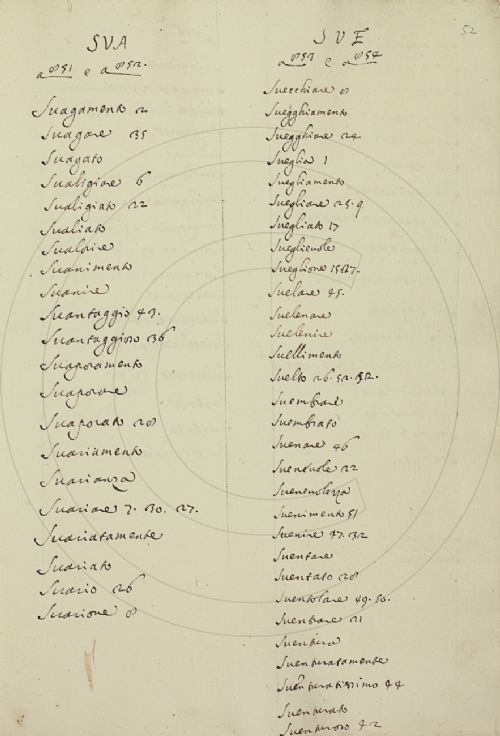 52
SVA
a 851 e a 852.
Suagamento 2
Suagare 35
Suagato
Sualigiare 6
Sualigiato 22
Sualiato
Sualorire
Suanimento
Suanire
Suantaggio 43.
Suantaggioso 36
Suaporamento
Suaporare
Suaporato 28
Suariamento
Suarianza
Suariare 7. 30. 27.
Suariatamente
Suariato
Suario 26
Suarione 8
SVE
a 853 e a 854
Suecchiare 8
Suegghiamento
Suegghiare 24
Sueglia 1
Suegliamento
Suegliare 25. 9
Suegliato 17
Sueglieuole
Sueglione
Suelare 45.
Suelenare
Suelenire
Suellimento
Suelto 26. 52. 32.
Suembrare
Suembrato
Suenare 46
Sueneuole 22
Sueneuolezza
Suenimento 51
Suenire 47. 32
Suentare
Suentato 28
Suentolare 49. 50.
Suentrare 21
Suentura
Suenturatamente
Suenturatissimo 44
Suenturato
Suenturoso 42